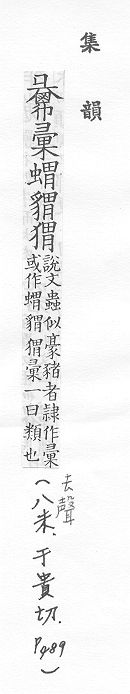 集韻
彙蝟貗猬
說文蟲似豪豬者隸作彙
或作蝟猬彙一曰類也
去聲
(八未.于貴切.P489)